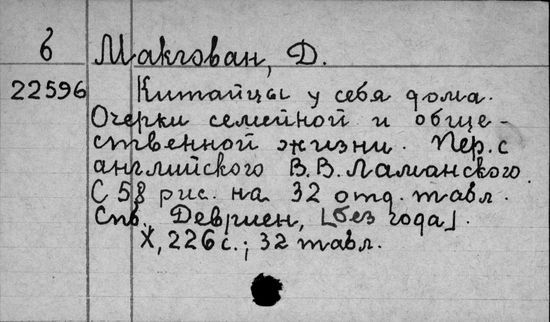 6 Макгован, Д.
22596 Китайцы у себя дома.
Очерки семейной и обще-
ственной жизни. Пер. с
английского В.В. Ламанского.
С 58 рис. на 32 отд. табл.
Спб., Девриен, [без года].
X, 226 с.; 32 табл.